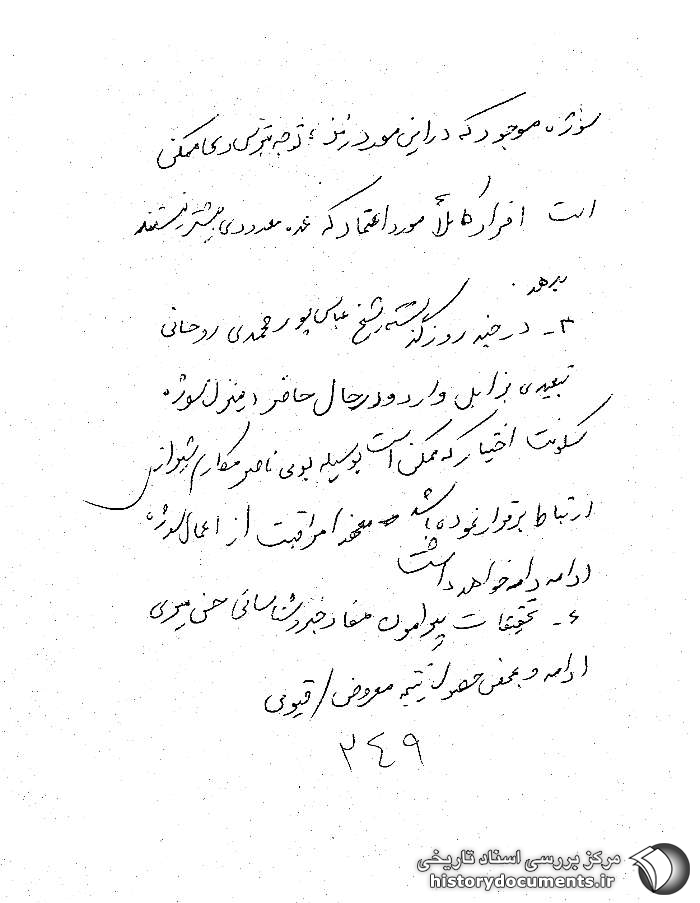 سوژه موجود که در این مورد نیز با توجه بترس وی ممکن
است افراد کاملاً مورد اعتماد که عده معدودی بیشتر نیستند
بدهد.
۳- در چند روز گذشته شیخ عباس پورمحمدی روحانی
تبعیدی بزابل وارد و در حال حاضر در منزل سوژه
سکونت اختیار که ممکن است بوسیله بومی ناصر مکارم شیرازی
ارتباط برقرار نموده باشد معهذا مراقبت از اعمال سوژه
ادامه داده خواهد داشت
۴- تحقیقات پیرامون مفاد خبر و شناسائی حسن میری
ادامه و بمحض حصول نتیجه معروض / قیومی
۲۴۹
مرکز بررسی اسناد تاریخی
historydocuments.ir